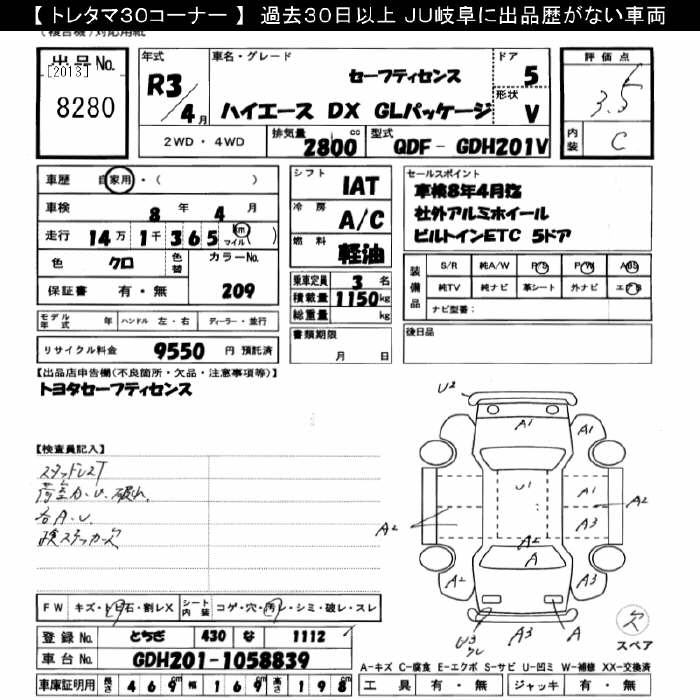 【 トレタマ30コーナー 】 過去30日以上 JU岐阜に出品歴がない車両
(複合機)対応用紙
出品No.
[2013]
8280
年式
R3/4月
車名・グレード
セーフティセンス
ハイエース DX GLパッケージ
ドア
5
形状
V
評価点
3.5
内装
C
2WD・4WD
排気量
2800cc
型式
QDF- GDH201V
車歴 自家用・( )
車検 8年 4月
走行 14万 1千 365 km マイル( )
色 クロ 色替 カラーNo.
保証書 有・無 209
モデル年式 年 ハンドル 左・右 ディーラー・並行
リサイクル料金 9550 円 預託済
シフト IAT
冷房 A/C
燃料 軽油
乗車定員 3 名
積載量 1150kg
総重量 kg
書類期限
月 日
セールスポイント
車検8年4月迄
社外アルミホイール
ビルトインETC 5ドア
装備品
S/R 純A/W P/S P/W ABS
純TV 純ナビ 革シート 外ナビ エアB
ナビ型番:
後日品
【出品店申告欄(不良箇所・欠品・注意事項等)】
トヨタセーフティセンス
【検査員記入】
スタッドレスT
荷室カ.U.破れ.
各A.U.
検ステッカー欠
FW キズ・トビ石・割レX シート内装 コゲ・穴・汚レ・シミ・破レ・スレ
登録No. とちぎ 430 な 1112
車台No. GDH201-1058839
車庫証明用 長さ 469cm 幅 169cm 高さ 198cm
U2
A1
A1
A1
U1
A2
A2
A3
A2
A
A2
A3
A3
A
欠
スペア
A-キズ C-腐食 E-エクボ S-サビ U-凹ミ W-補修 XX-交換済
工具 有・無 ジャッキ 有・無